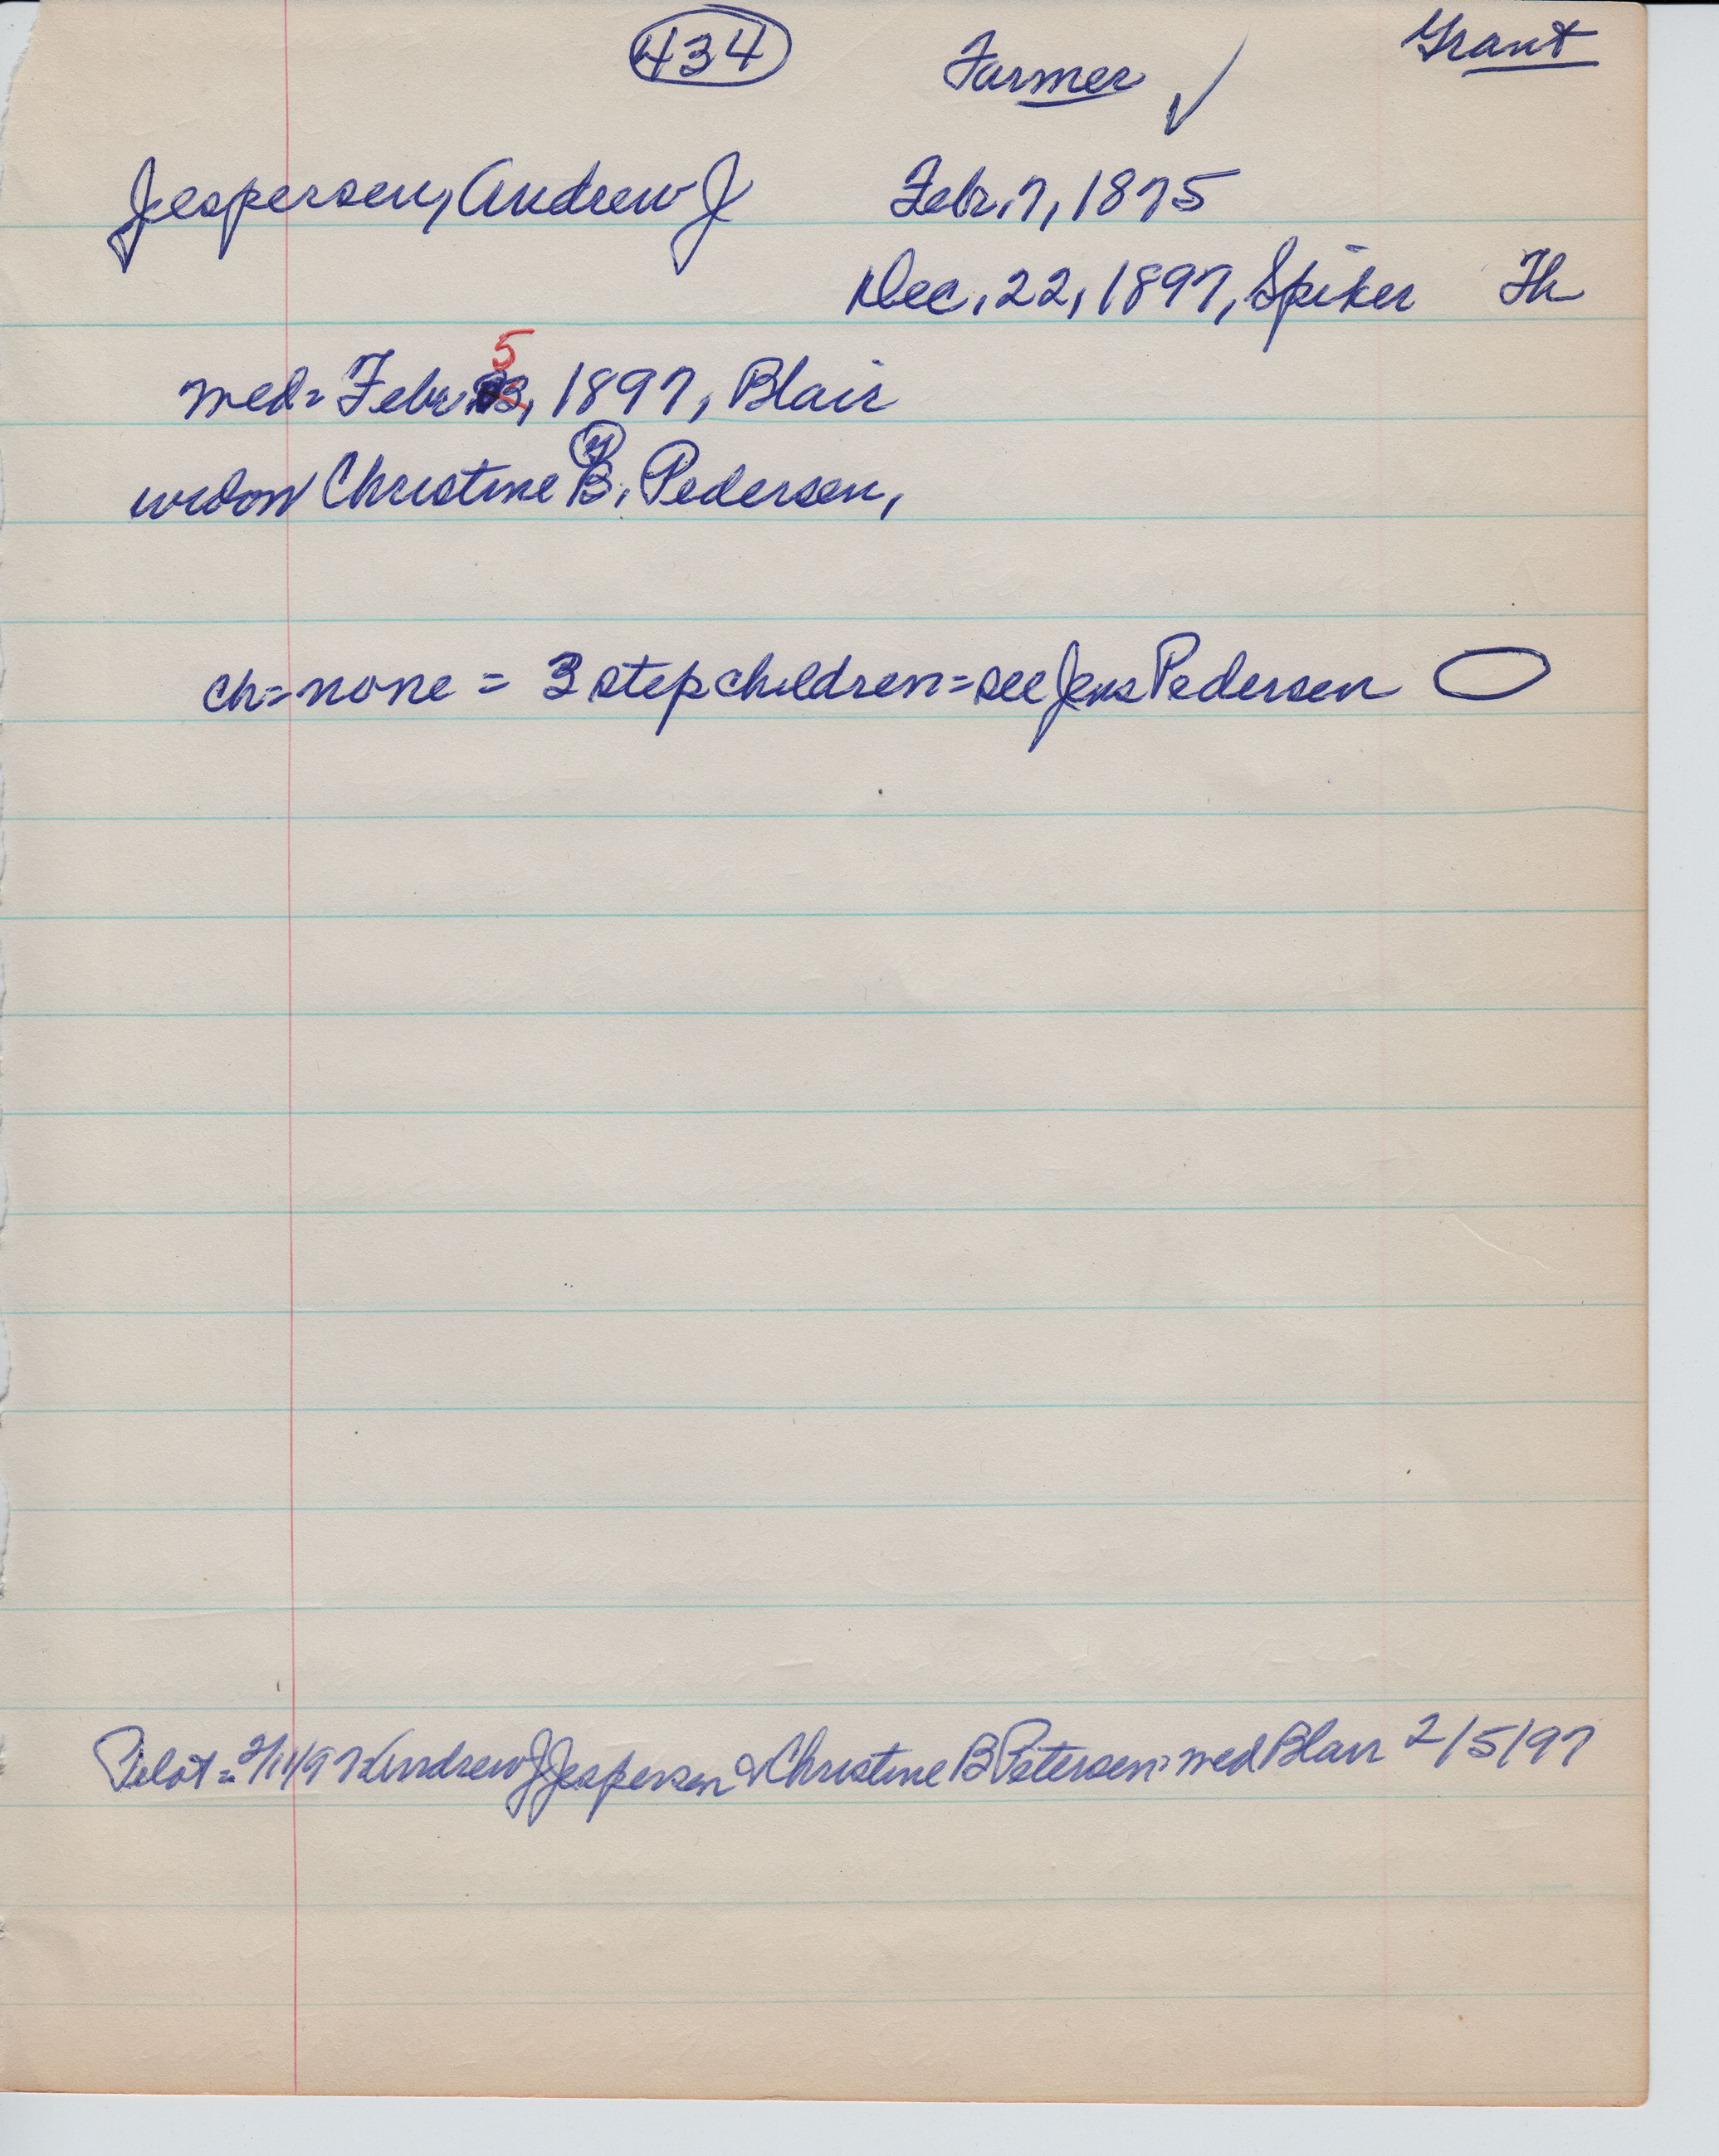 434 Farmer ✓ Grant
Jespersen, Andrew J Febr. 7, 1875
Dec, 22, 1897, Spiker Th
med= Febr. 5, 1897, Blair
widow Christine B. Pedersen,
ch=none = 3 stepchildren=see Jens Pedersen
Pilot= 2/11/97 Andrew J Jespersen & Christine B Petersen= med Blair 2/5/97